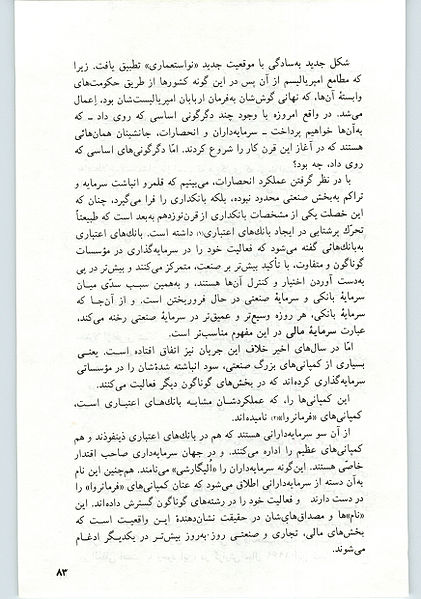 شکل جدید به‌سادگی با موقعیت جدید «نواستعماری» تطبیق یافت. زیرا
که مطامع امپریالیسم از آن پس در این گونه کشورها از طریق حکومت‌های
وابستهٔ آن‌ها، که نهانی گوش‌شان به‌فرمان اربابان امپریالیست‌شان بود، اِعمال
می‌شد. در واقع امروزه با وجود چند دگرگونی اساسی که روی داد ـ که
به‌آن‌ها خواهیم پرداخت ـ سرمایه‌داران و انحصارات، جانشینان همان‌هائی
هستند که در آغاز این قرن کار را شروع کردند. امّا دگرگونی‌های اساسی که
روی داد، چه بود؟
با در نظر گرفتن عملکرد انحصارات، می‌بینیم که قلمرو انباشت سرمایه و
تراکم به‌بخش صنعتی محدود نبوده، بلکه بانکداری را فرا می‌گیرد، چنان که
این خصلت یکی از مشخصات بانکداری از قرن‌نوزدهم به‌بعد است که طبیعتاً
تحرك پرشتابی در ایجاد بانك‌های اعتباری(۱) داشته است. بانك‌های اعتباری
به‌بانك‌هائی گفته می‌شود که فعالیت خود را در سرمایه‌گذاری در مؤسسات
گوناگون و متفاوت، با تأکید بیش‌تر بر صنعت، متمرکز می‌کنند و بیش‌تر در پی
به‌دست آوردن اختیار و کنترل آن‌ها هستند، و به‌همین سبب سدّی میان
سرمایهٔ بانکی و سرمایهٔ صنعتی در حال فروریختن است. و از آن‌جا که
سرمایهٔ بانکی، هر روزه وسیع‌تر و عمیق‌تر در سرمایهٔ صنعتی رخنه می‌کند،
عبارت سرمایهٔ مالی در این مفهوم مناسب‌تر است.
امّا در سال‌های اخیر خلاف این جریان نیز اتفاق افتاده است. یعنی
بسیاری از کمپانی‌های بزرگ صنعتی، سود انباشته شده‌شان را در مؤسساتی
سرمایه‌گذاری کرده‌اند که در بخش‌های گوناگون دیگر فعالیت می‌کنند.
این کمپانی‌ها را، که عملکردشان مشابه بانك‌های اعتباری است،
کمپانی‌های «فرمانروا»(۲) نامیده‌اند.
از آن سو سرمایه‌دارانی هستند که هم در بانك‌های اعتباری ذینفوذند و هم
کمپانی‌های عظیم را اداره می‌کنند. و در جهان سرمایه‌داری صاحب اقتدار
خاصّی هستند. این‌گونه سرمایه‌داران را «اُلیگارشی» می‌نامند. هم‌چنین این نام
به‌آن دسته از سرمایه‌دارانی اطلاق می‌شود که عنان کمپانی‌های «فرمانروا» را
در دست دارند و فعالیت خود را در رشته‌های گوناگون گسترش داده‌اند. این
«نام»ها و مصداق‌های‌شان در حقیقت نشان‌دهندهٔ این واقعیت است که
بخش‌های مالی، تجاری و صنعتی روز-به‌روز بیش‌تر در یکدیگر ادغام
می‌شوند.
۸۳